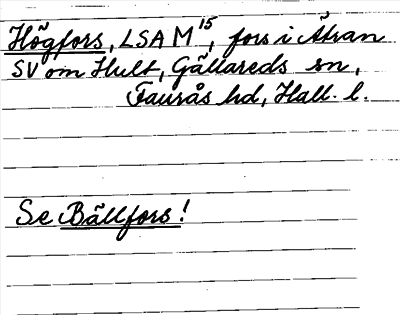 Högfors, LSA M¹⁵, fors i Ätran
SV om Hult, Gällareds sn,
Faurås hd, Hall. l.
Se Bällfors!